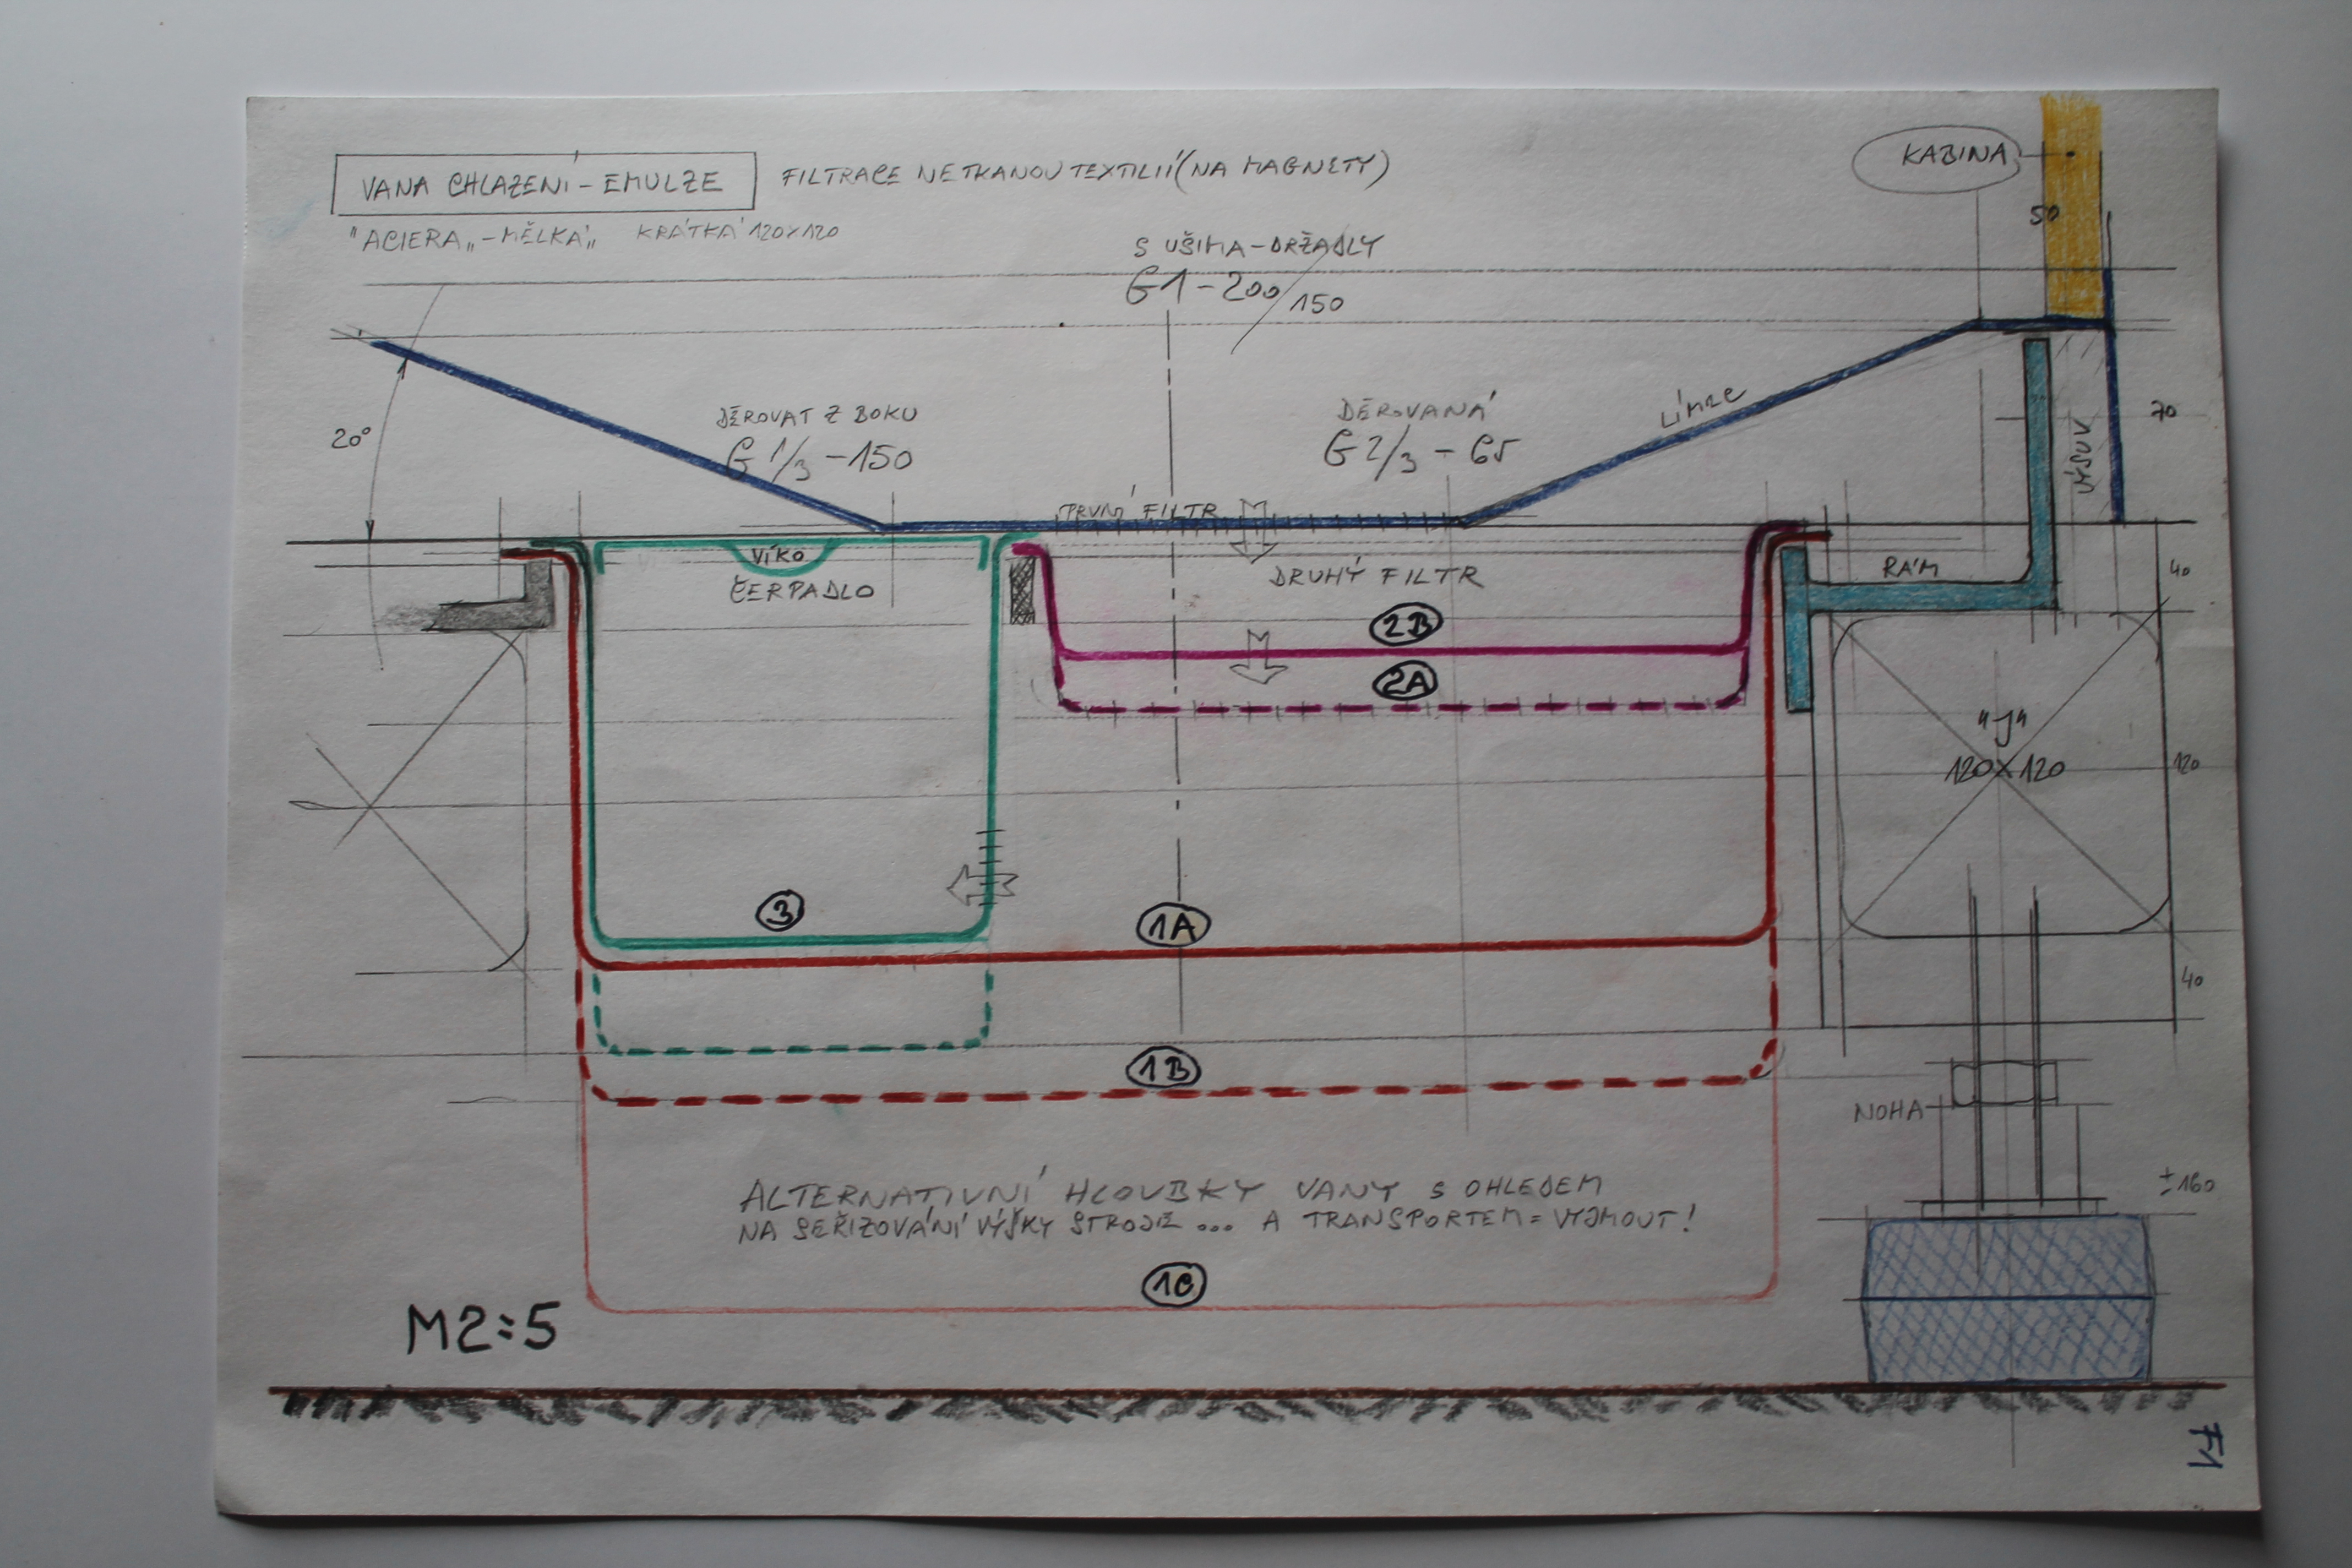 VANA CHLAZENÍ - EMULZE
FILTRACE NETKANOU TEXTILIÍ (NA MAGNETY)
"ACIERA„ - MĚLKÁ„ KRÁTKÁ 120x120
KABINA
50
S UŠIMA - DRŽADLY
G1 - 200/150
20°
DĚROVAT Z BOKU
G 1/3 - 150
DĚROVANÁ
G 2/3 - 65
LÍMEC
70
VÝSUV
PRVNÍ FILTR
VÍKO
ČERPADLO
DRUHÝ FILTR
RÁM
40
2B
2A
"J"
120x120
120
3
1A
40
1B
NOHA
ALTERNATIVNÍ HLOUBKY VANY S OHLEDEM
NA SEŘIZOVÁNÍ VÝŠKY STROJE ... A TRANSPORTEM = VYJMOUT!
±160
1C
M2:5
F1